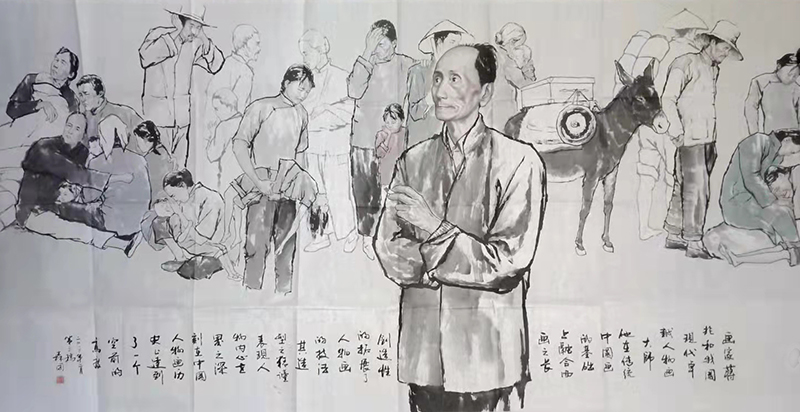 画家蒋
兆和我国
现代卓
越人物画
大师
他在传统
中国画
的基础
上融合西
画之长
创造性
的拓展了
人物画
的技法
其造
型之精谨
表现人
物内心世
界之深
刻在中国
人物画历
史上达到
了一个
空前的
高峰